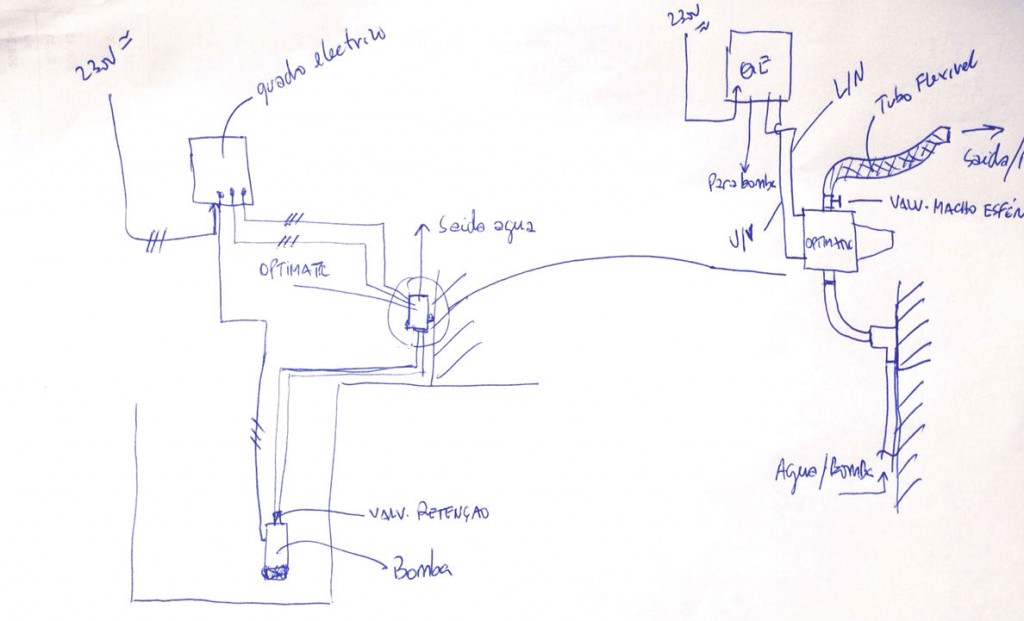 230V ≈
quadro electrico
Saida agua
OPTIMATIC
VALV. RETENÇAO
Bomba
230V
≈
QE
L/N
Tubo Flexivel
Saida/
Para bomba
VALV. MACHO ESFÉR
OPTIMATIC
Agua/Bomba